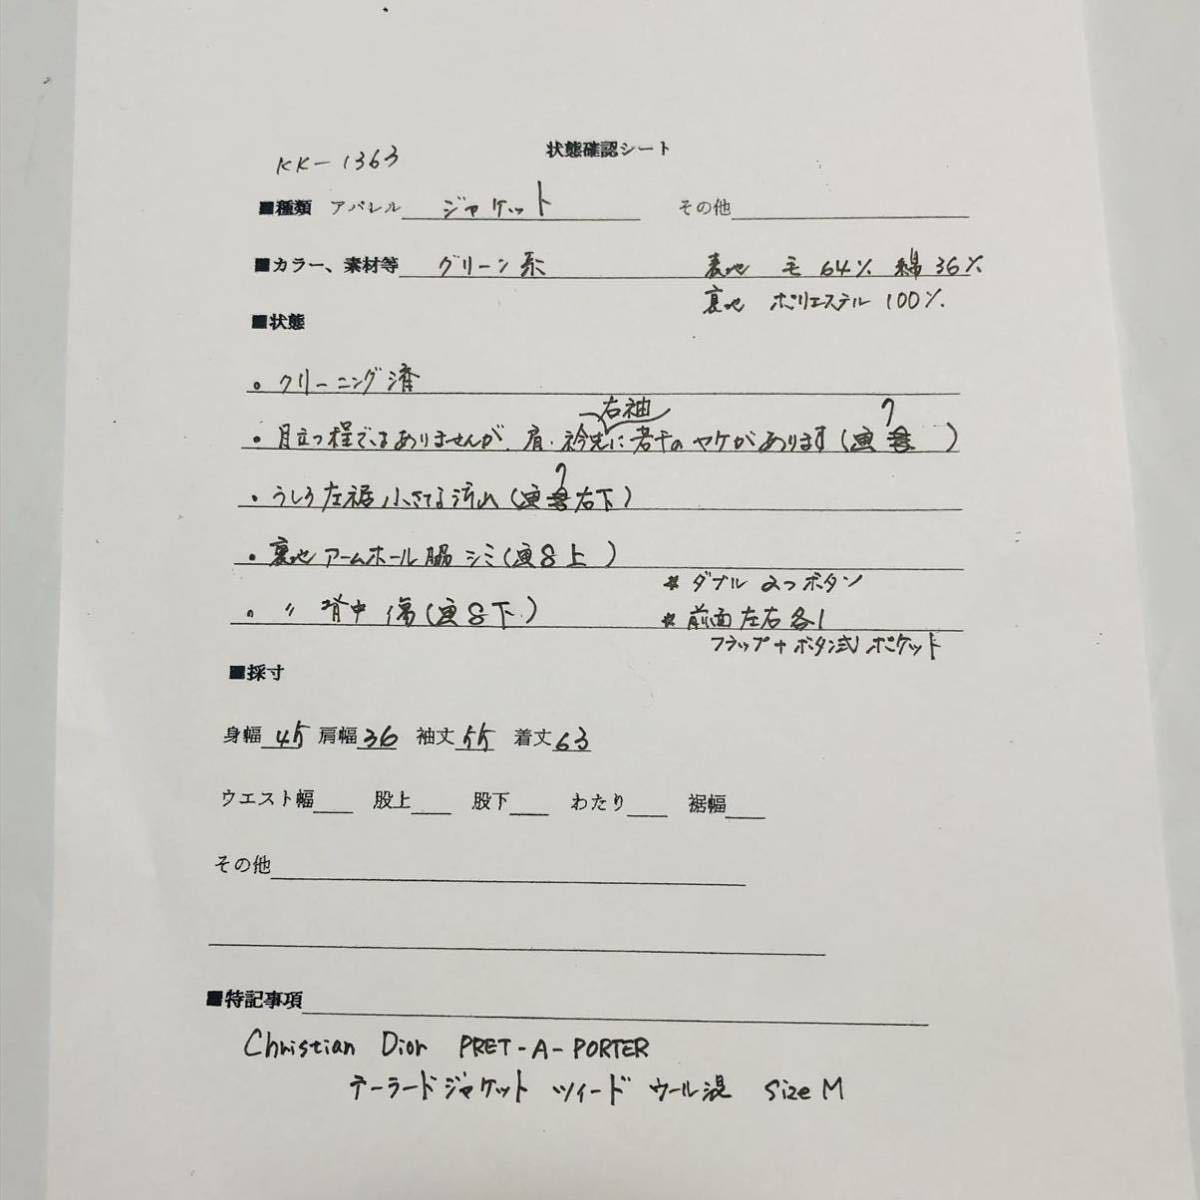 KK-1363
状態確認シート
■種類 アパレル ジャケット その他
■カラー、素材等 グリーン系 表地 毛 64% 綿 36%
裏地 ポリエステル 100%
■状態
・クリーニング済
右袖
7
・目立つ程ではありませんが、肩・衿先に若干のヤケがあります(画 )
7
・うしろ左裾 小さな汚れ(画 右下)
・裏地 アームホール脇 シミ(画8上)
* ダブル 2つボタン
〃 〃 背中 傷(画8下)
* 前面左右各1
フラップ+ボタン式ポケット
■採寸
身幅 45 肩幅 36 袖丈 55 着丈 63
ウエスト幅 股上 股下 わたり 裾幅
その他
■特記事項
Christian Dior PRET-A-PORTER
テーラードジャケット ツイード ウール混 Size M